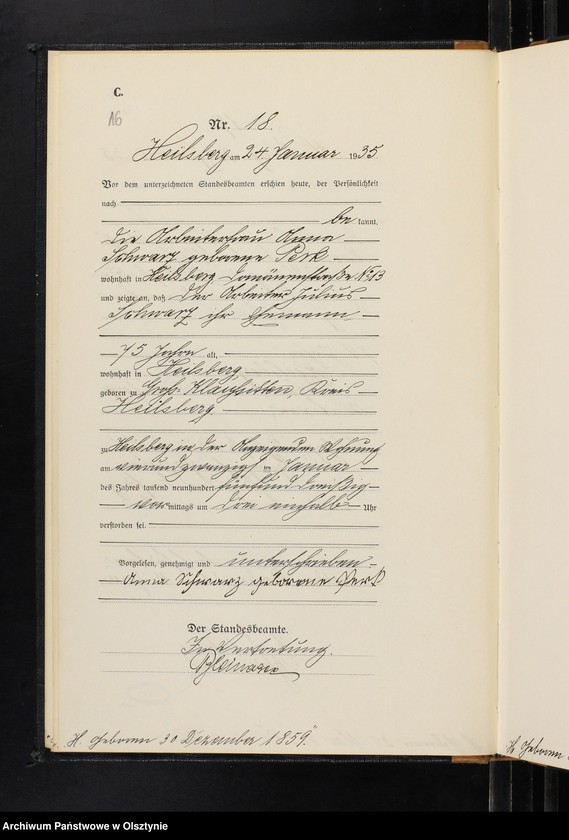 C.
16
Nr. 18.
Heilsberg am 24 Januar 1935.
Vor dem unterzeichneten Standesbeamten erschien heute, der Persönlichkeit
nach
be kannt,
die Arbeiterfrau Anna
Schwarz geborene Perk
wohnhaft in Heilsberg Domänenstraße No 13
und zeigte an, daß der Arbeiter Julius
Schwarz ihr Ehemann
75 Jahre alt,
wohnhaft in Heilsberg
geboren zu Groß Klaussitten, Kreis
Heilsberg
zu Heilsberg in der Anzeigenden Wohnung
am vierundzwanzig ten Januar
des Jahres tausend neunhundert fünfund dreißig
vor mittags um drei einhalb Uhr
verstorben sei.
Vorgelesen, genehmigt und unterschrieben
Anna Schwarz geborene Perk
Der Standesbeamte.
In Vertretung.
H. Geboren 30 Dezember 1859.
H. Geboren
Archiwum Państwowe w Olsztynie